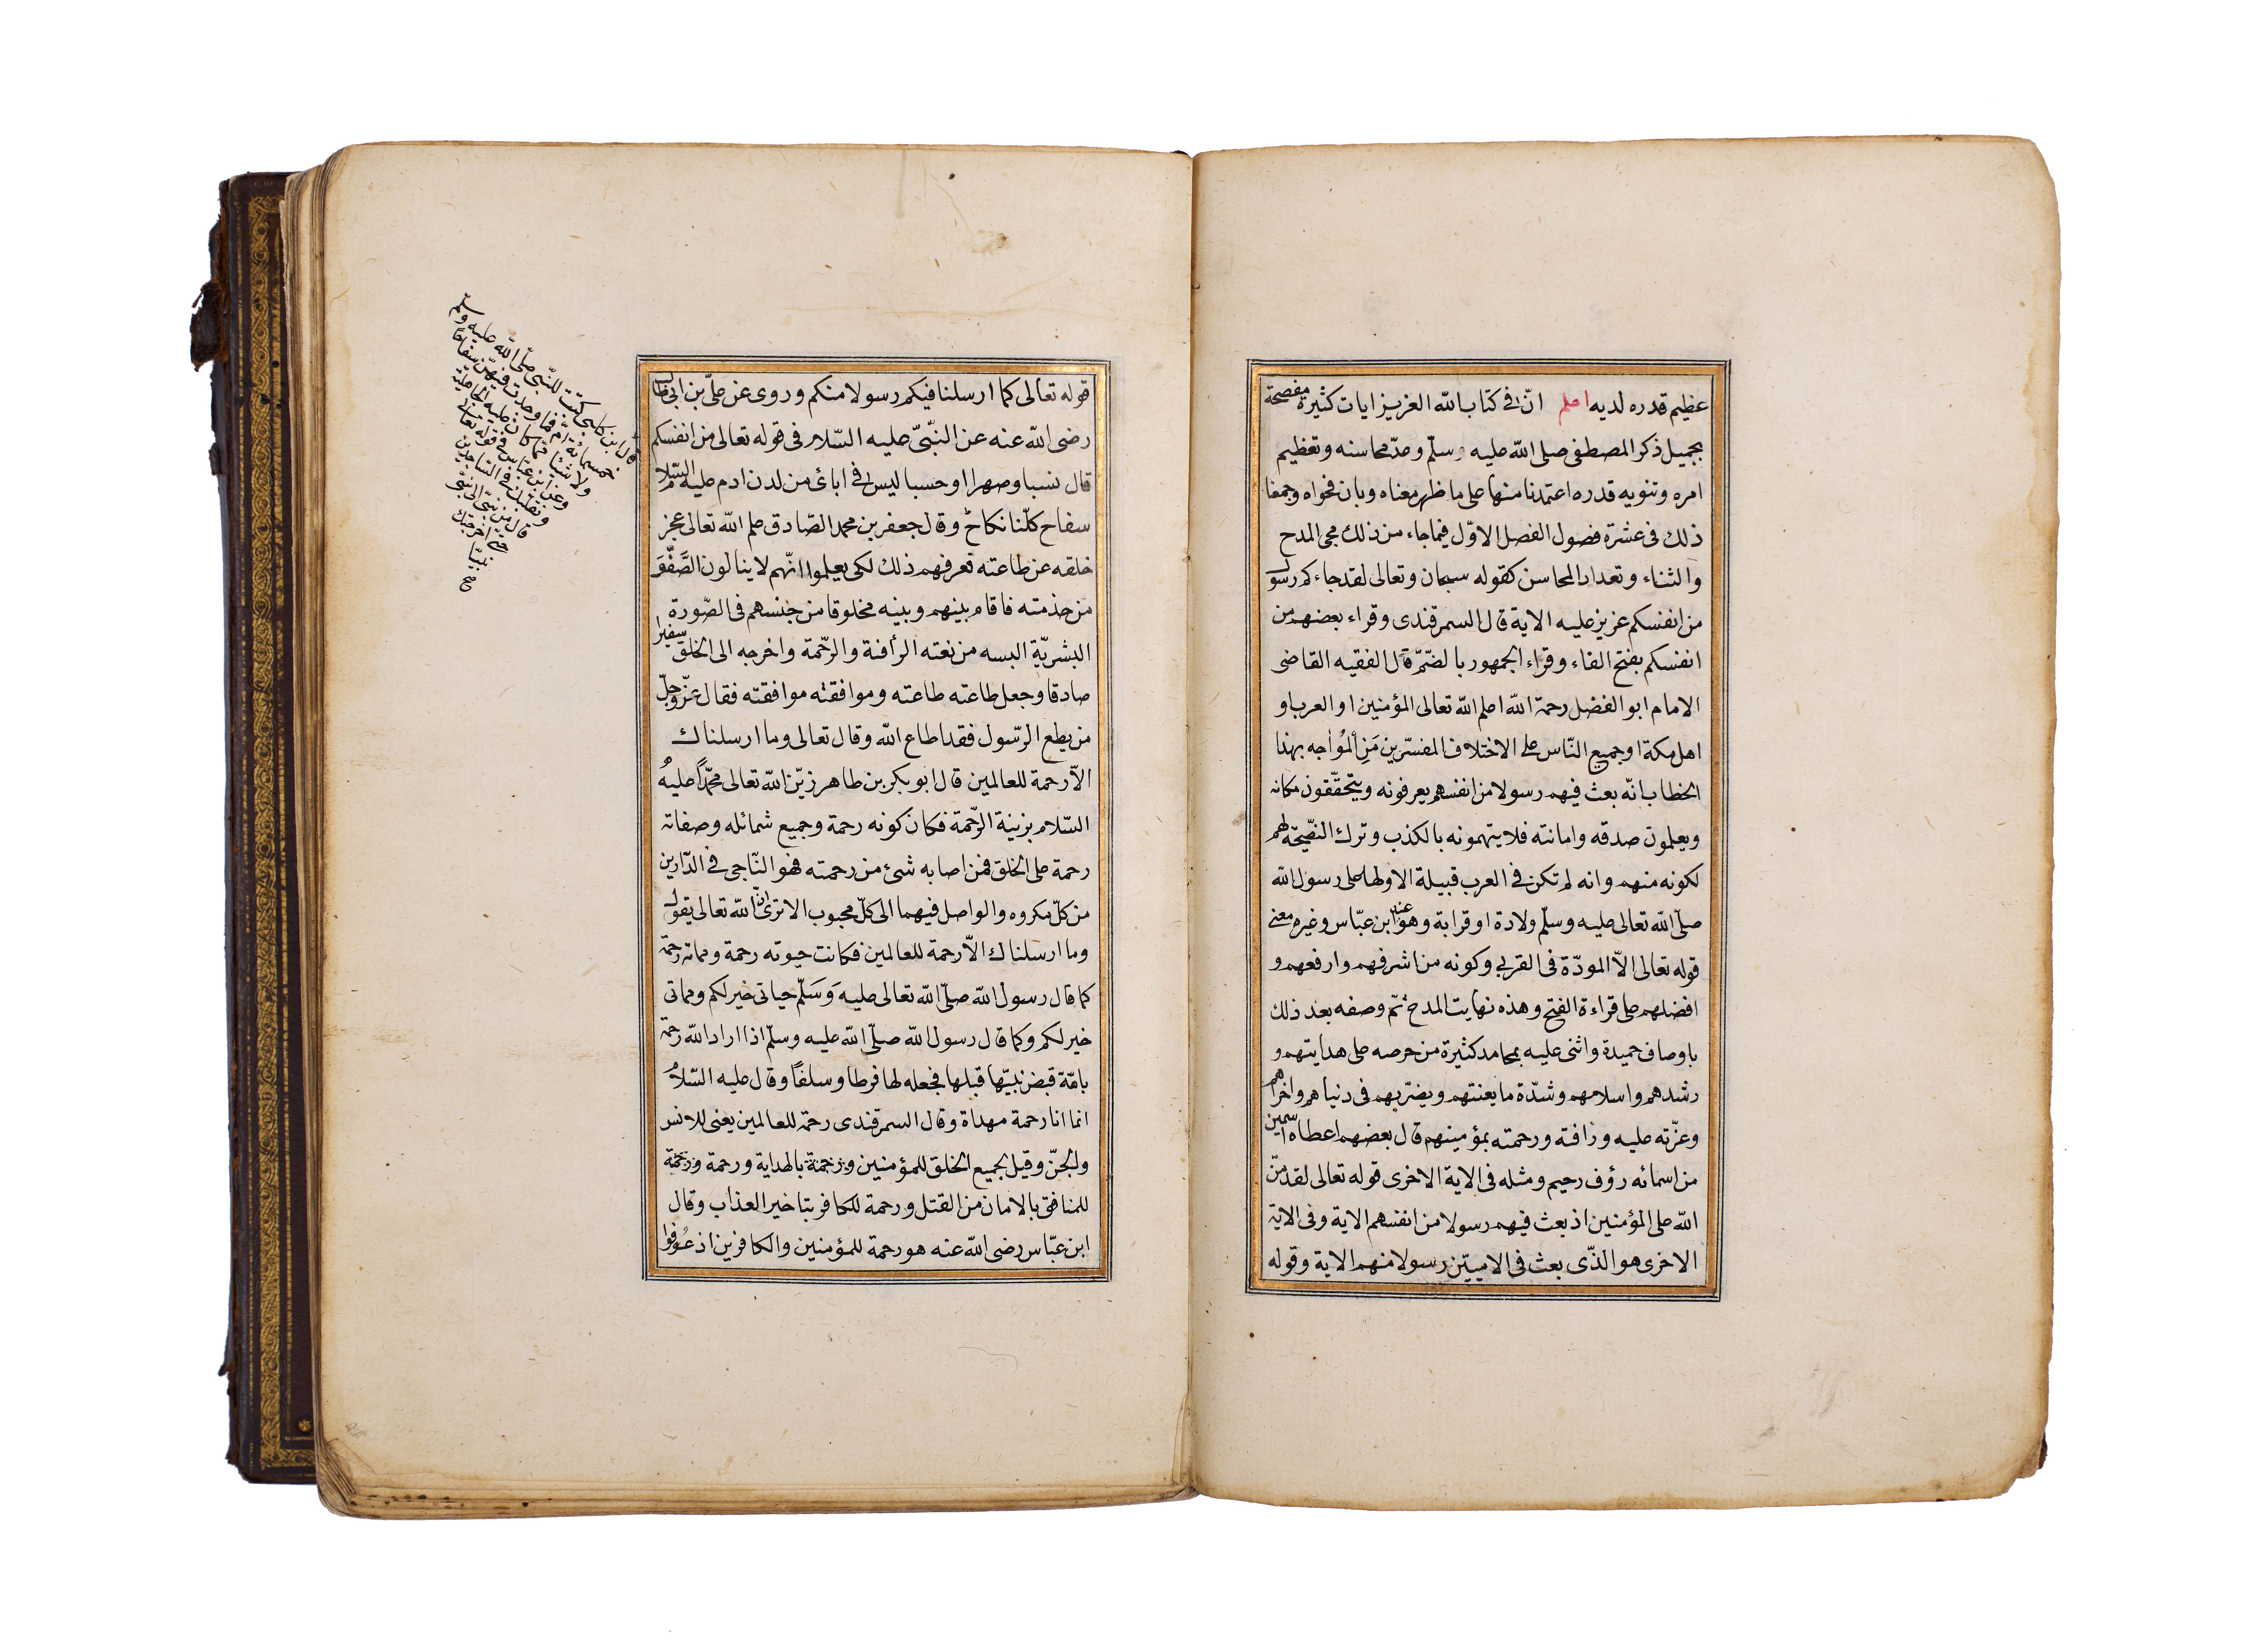 عظيم قدره لديه اعلم انّ فى كتاب الله العزيز ايات كثيرة مفصحة
بجميل ذكر المصطفى صلى الله عليه وسلّم وعدّ محاسنه وتعظيم
امره وتنويه قدره اعتمدنا منها على ما ظهر معناه وبان فحواه وجمعنا
ذلك فى عشرة فصول الفصل الاوّل فيما جاء من ذلك مجى المدح
والثناء وتعداد المحاسن كقوله سبحان وتعالى لقد جاءكم رسول
من انفسكم عزيز عليه الاية قال السمرقندى وقراء بعضهم من
انفسكم بفتح الفاء وقراء الجمهور بالضّمّ قال الفقيه القاضى
الامام ابو الفضل رحمة الله اعلم الله تعالى المؤمنين او العرب او
اهل مكة او جميع النّاس على الاختلاف المفسّرين مَنِ المُواجه بهذا
الخطاب انّه بعث فيهم رسولا من انفسهم يعرفونه ويتحقّقون مكانه
ويعلمون صدقه وامانته فلا يتهمونه بالكذب وترك النصّيحة لهم
لكونه منهم وانه لم تكن فى العرب قبيلة الا ولها على رسول الله
صلّى الله تعالى عليه وسلّم ولادة او قرابة وهو عند ابن عبّاس وغيره معنى
قوله تعالى الاّ المودّة فى القربى وكونه من اشرفهم وارفعهم و
افضلهم على قراءة الفتح وهذه نهايت المدح ثمّ وصفه بعد ذلك
باوصاف حميدة واثنى عليه بمحامد كثيرة من حرصه على هدايتهم و
رشدهم واسلامهم وشدّة ما يعنتهم ويضرّبهم فى دنياهم واخراهم
وعزّته عليه ورافة ورحمته بمؤمينهم قال بعضهم اعطاه اسمين
من اسمائه رؤف رحيم ومثله فى الاية الاخرى قوله تعالى لقد منّ
الله على المؤمنين اذ بعث فيهم رسولا من انفسهم الاية وفى الاية
الاخرى هو الذّى بعث فى الاميّين رسولا منهم الاية وقوله
قوله تعالى كما ارسلنا فيكم رسولا منكم وروى عن علىّ بن ابى طالب
رضى الله عنه عن النّبّىّ عليه السّلام فى قوله تعالى من انفسكم
قال نسبا وصهرا او حسبا ليس فى ابائى من لدن ادم عليه السّلام
سفاح كلّنا نكاح وقال جعفر بن محمد الصّادق علم الله تعالى عجز
خلقه عن طاعته فعرفهم ذلك لكى يعلموا انّهم لا ينالون الصَّفْوَ
من خذمته فاقام بينهم وبينه مخلوقا من جنسهم فى الصّورة
البشريّة البسه من نعته الرأفة والرّحمة واخرجه الى الخلق سفيرا
صادقا وجعل طاعته طاعته وموافقته موافقته فقال عزّ وجلّ
من يطع الرّسول فقد اطاع الله وقال تعالى وما ارسلناك
الاّ رحمة للعالمين قال ابو بكر بن طاهر زيّن الله تعالى محمّدًا عليه
السّلام بزينة الرّحمة فكان كونه رحمة وجميع شمائله وصفاته
رحمة على الخلق فمن اصابه شئ من رحمته فهو النّاجى فى الدّارين
من كلّ مكروه والواصل فيهما الى كلّ محبوب الا ترى انّ الله تعالى يقول
وما ارسلناك الاّ رحمة للعالمين فكانت حيوته رحمة ومماته رحمة
كما قال رسول الله صلّى الله تعالى عليه وَسَلّم حياتى خير لكم ومماتى
خير لكم وكما قال رسول الله صلّى الله عليه وسلّم اذا اراد الله رحمة
بامّة قبض نبيّها قبلها فجعله لها فرطا وسلفًا وقال عليه السّلام
انما انا رحمة مهداة وقال السمرقندى رحمة للعالمين يعنى للانس
والجنّ وقيل لجميع الخلق للمؤمنين ورحمة بالهداية ورحمة ورحمة
للمنافق بالامان من القتل ورحمة للكافر بتاخير العذاب وقال
ابن عبّاس رضى الله عنه هو رحمة للمؤمنين والكافرين اذ عُوفوا
قال ابن كلبى كتبت للنّبى صلّى الله عليه وسلّم
خمسمائة امّ فما وجدت فيهنّ سفاحًا
ولا شيئا ممّا كان عليه الجاهليّة
وعن ابن عبّاس فى قوله تعالى
وتقلّبك فى السّاجدين
قال من نبىّ الى نبىّ
حتى اخرجتك
نبيّا
صح